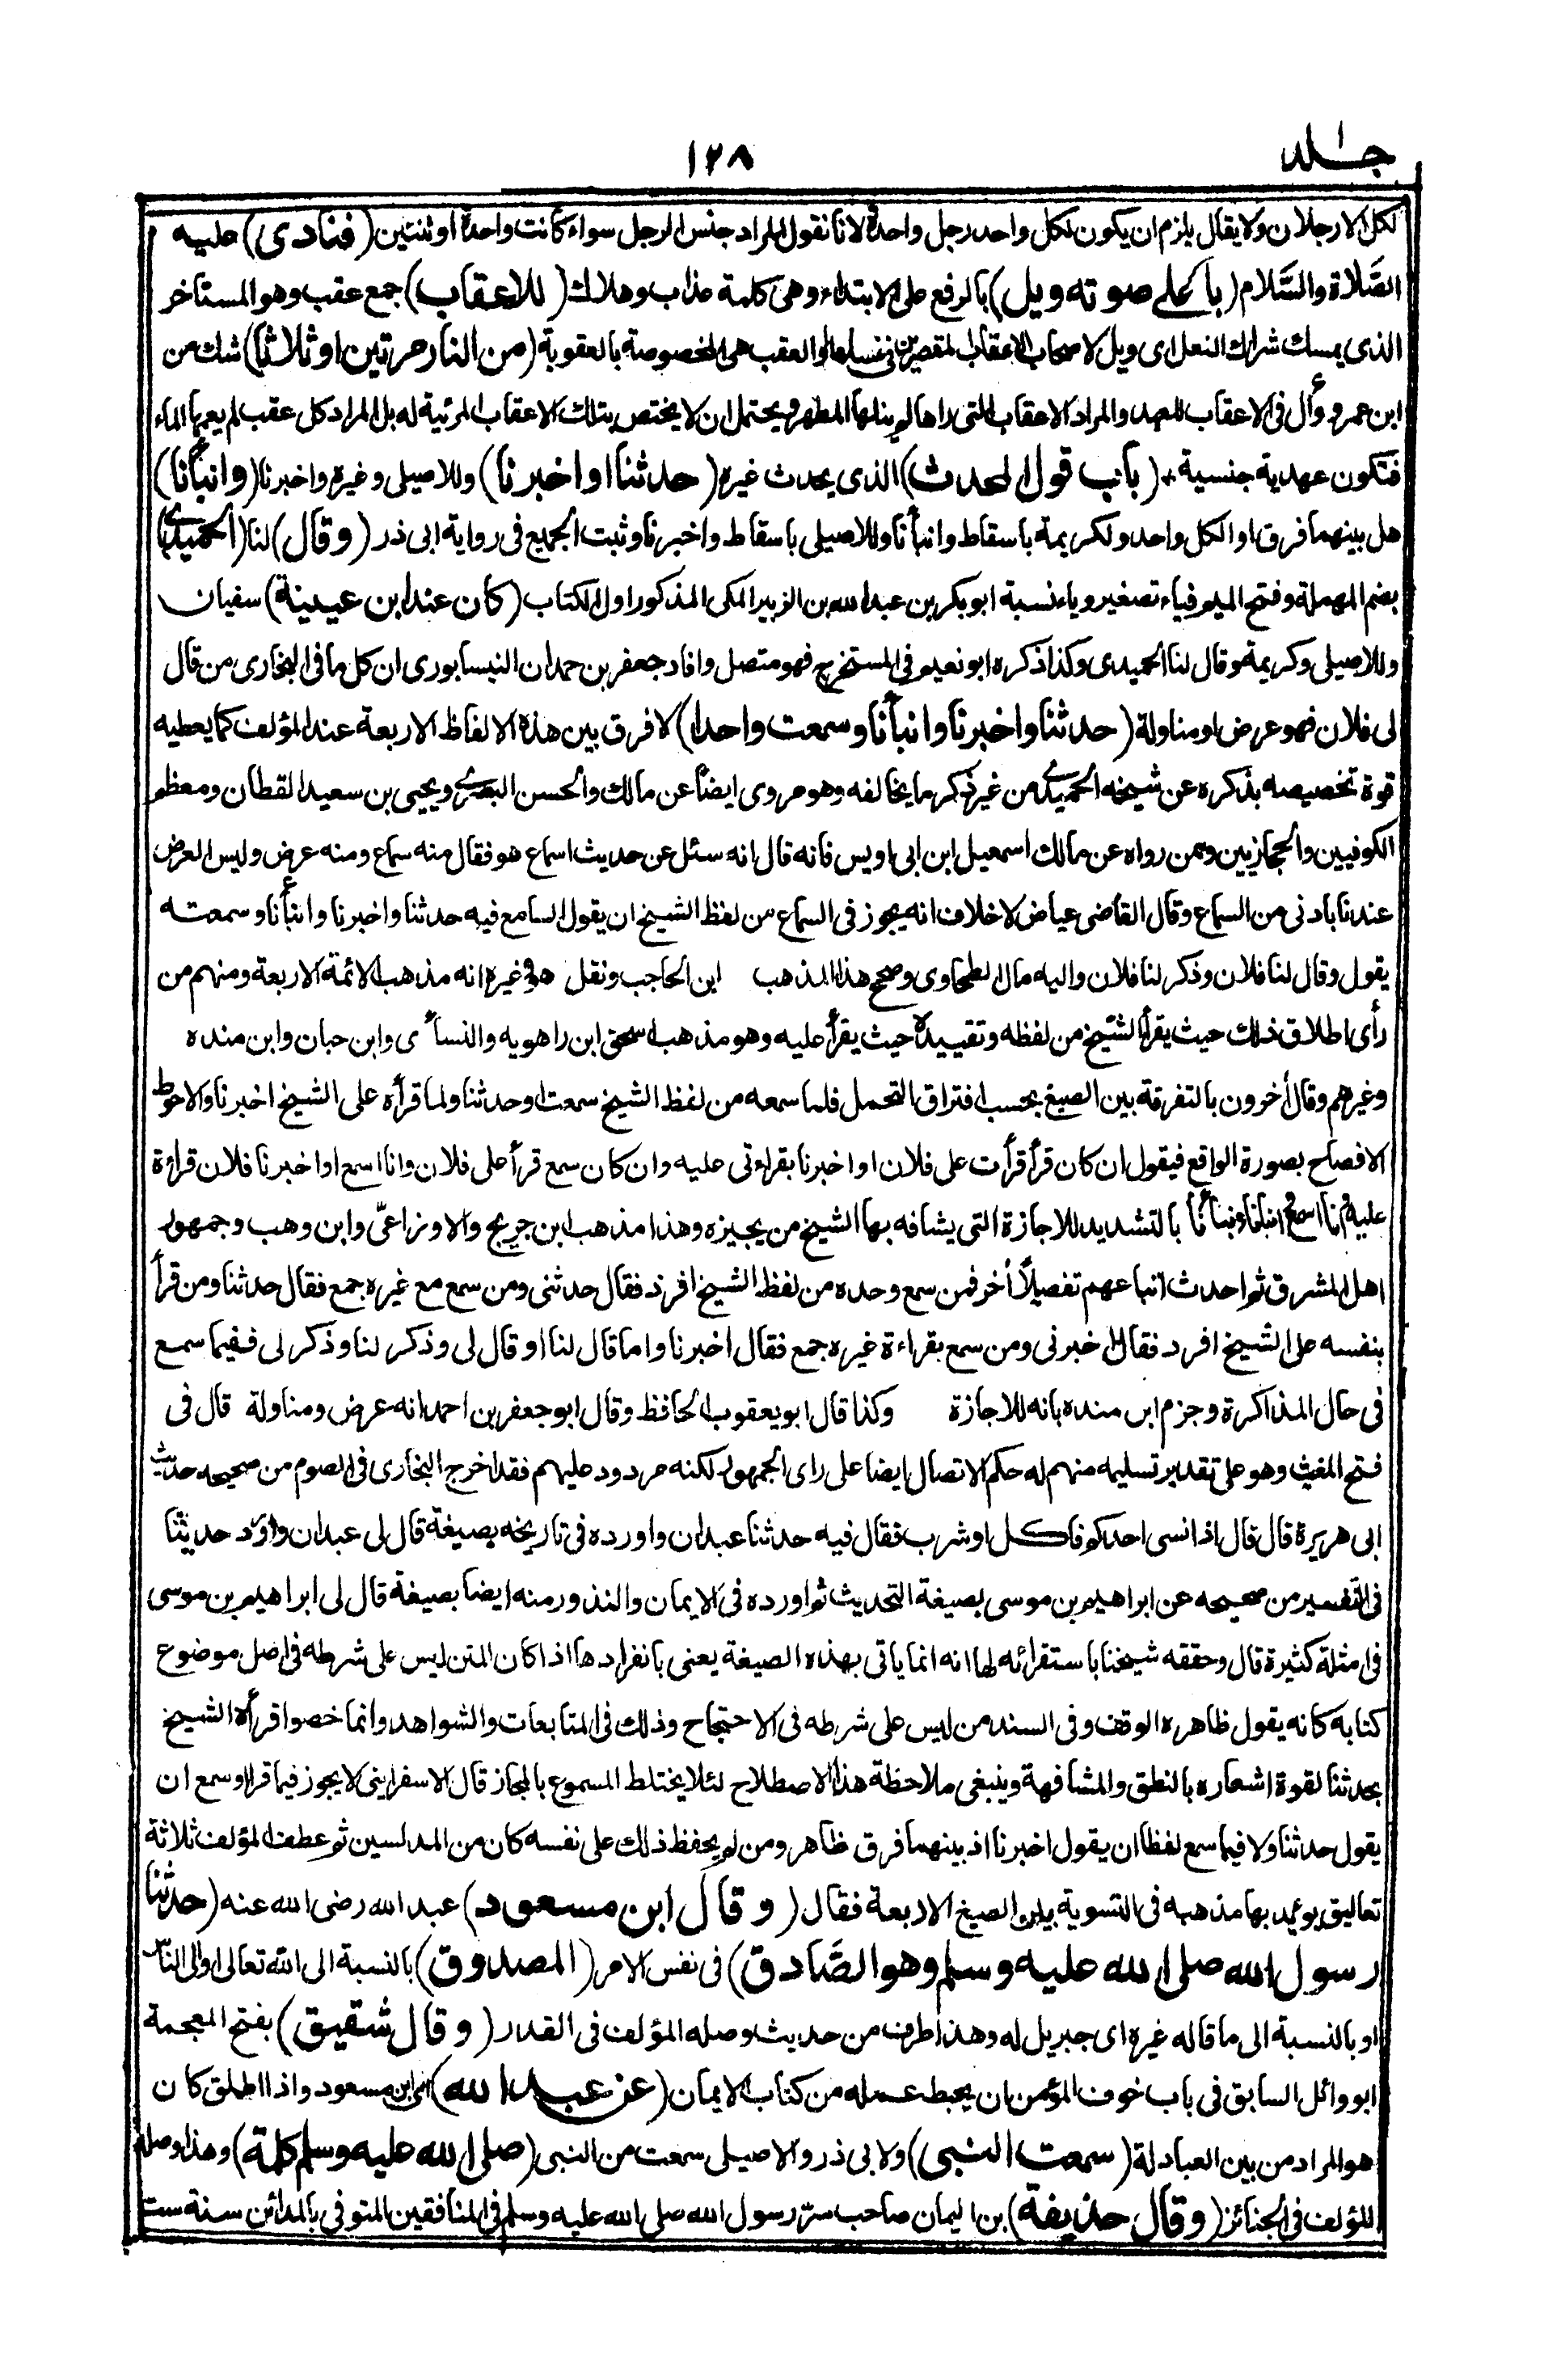 جلد ١
١٢٨
لكل الا رجلان ولا يقال يلزم ان يكون لكل واحد رجل واحدة لانا نقول المراد جنس الرجل سواء كانت واحدة او ثنتين (فنادى) عليه
الصَّلاة والسَّلام (باعلى صوته ويل) بالرفع على الابتداء وهى كلمة عذاب وهلاك (للاعقاب) جمع عقب وهو المستاخر
الذى يمسك شراك النعل اى ويل لاصحاب الاعقاب المقصرين فى غسلها او العقب هى المخصوصة بالعقوبة (من النار مرتين او ثلاثا) شك من
ابن عمرو وأل فى الاعقاب للعهد والمراد الاعقاب التى راها لم ينلها المطهر ويحتمل ان لا يختص بتلك الاعقاب المرئية له بل المراد كل عقب لم يعمها الماء
فتكون عهدية جنسية + (باب قول المحدث) الذى يحدث غيره (حدثنا او اخبرنا) وللاصيلى وغيره واخبرنا (وانبأنا)
هل بينهما فرق او الكل واحد ولكريمة باسقاط وانبأنا وللاصيلى باسقاط واخبرنا وثبت الجميع فى رواية ابى ذر (وقال) لنا (الحميدى)
بضم المهملة وفتح الميم فياء تصغير وياء نسبة ابو بكر بن عبد الله بن الزبير المكى المذكور اول الكتاب (كان عند ابن عيينة) سفيان
وللاصيلى وكريمة وقال لنا الحميدى وكذا ذكره ابو نعيم فى المستخرج فهو متصل وافاد جعفر بن حمدان النيسابورى ان كل ما فى البخارى من قال
لى فلان فهو عرض او مناولة (حدثنا واخبرنا وانبأنا وسمعت واحدا) لا فرق بين هذه الالفاظ الاربعة عند المؤلف كما يعطيه
قوة تخصيصه بذكره عن شيخه الحميدى من غير ذكر ما يخالفه وهو مروى ايضا عن مالك والحسن البصرى ويحيى بن سعيد القطان ومعظم
الكوفيين والحجازيين وممن رواه عن مالك اسمعيل ابن ابى اويس فانه قال انه سئل عن حديث اسماع هو فقال منه سماع ومنه عرض وليس العرض
عندنا بادنى من السماع وقال القاضى عياض لا خلاف انه يجوز فى السماع من لفظ الشيخ ان يقول السامع فيه حدثنا واخبرنا وانبأنا وسمعته
يقول وقال لنا فلان وذكر لنا فلان واليه مال الطحاوى وصحح هذا المذهب ابن الحاجب ونقل هو وغيره انه مذهب الائمة الاربعة ومنهم من
رأى اطلاق ذلك حيث يقرأ الشيخ من لفظه وتقييده حيث يقرأ عليه وهو مذهب اسحق ابن راهويه والنسأى وابن حبان وابن منده
وغيرهم وقال أخرون بالتفرقة بين الصيغ بحسب افتراق التحمل فلما سمعه من لفظ الشيخ سمعت او حدثنا ولما قرأه على الشيخ اخبرنا والاحوط
الافصاح بصورة الواقع فيقول ان كان قرأ قرأت على فلان او اخبرنا بقراءتى عليه وان كان سمع قرأ على فلان وانا اسمع او اخبرنا فلان قراءة
عليه وانا اسمع وانبأنا ونبأنا بالتشديد للاجازة التى يشافه بها الشيخ من يجيزه وهذا مذهب ابن جريج والاوزاعىّ وابن وهب وجمهور
اهل المشرق ثم احدث اتباعهم تفصيلاً أخر فمن سمع وحده من لفظ الشيخ افرد فقال حدثنى ومن سمع مع غيره جمع فقال حدثنا ومن قرأ
بنفسه على الشيخ افرد فقال اخبرنى ومن سمع بقراءة غيره جمع فقال اخبرنا واما قال لنا او قال لى وذكر لنا وذكر لى ففيما سمع
فى حال المذاكرة وجزم ابن منده بانه للاجازة وكذا قال ابو يعقوب الحافظ وقال ابو جعفر بن احمد انه عرض ومناولة قال فى
فتح المغيث وهو على تقدير تسليمه منهم له حكم الاتصال ايضا على راى الجمهور لكنه مردود عليهم فقد اخرج البخارى فى الصوم من صحيحه حديث
ابى هريرة قال قال اذا نسى احدكم فاكل او شرب فقال فيه حدثنا عبدان واورده فى تاريخه بصيغة قال لى عبدان واورد حديثا
فى التفسير من صحيحه عن ابراهيم بن موسى بصيغة التحديث ثم اورده فى الايمان والنذور منه ايضا بصيغة قال لى ابراهيم بن موسى
فى امثلة كثيرة قال وحققه شيخنا باستقرائه لها انه انما ياتى بهذه الصيغة يعنى بانفرادها اذا كان المتن ليس على شرطه فى اصل موضوع
كتابه كانه يقول ظاهره الوقف وفى السند من ليس على شرطه فى الاحتجاج وذلك فى المتابعات والشواهد وانما خصوا قرأة الشيخ
بحدثنا لقوة اشعاره بالنطق والمشافهة وينبغى ملاحظة هذا الاصطلاح لئلا يختلط المسموع بالمجاز قال الاسفراينى لا يجوز فيما قرا او سمع ان
يقول حدثنا ولا فيما سمع لفظا ان يقول اخبرنا اذ بينهما فرق ظاهر ومن لم يحفظ ذلك على نفسه كان من المدلسين ثم عطف المؤلف ثلاثة
تعاليق يؤيد بها مذهبه فى التسوية بين الصيغ الاربعة فقال (وقال ابن مسعود) عبد الله رضى الله عنه (حدثنا
رسول الله صلى الله عليه وسلم وهو الصَّادق) فى نفس الامر (المصدوق) بالنسبة الى الله تعالى او الى الناس
او بالنسبة الى ما قاله غيره اى جبريل له وهذا طرف من حديث وصله المؤلف فى القدر (وقال شقيق) بفتح المعجمة
ابو وائل السابق فى باب خوف المؤمن ان يحبط عمله من كتاب الايمان (عن عبد الله) اى ابن مسعود واذا اطلق كان
هو المراد من بين العبادلة (سمعت النبى) ولابى ذر والاصيلى سمعت من النبى (صلى الله عليه وسلم كلمة) وهذا وصله
المؤلف فى الجنائز (وقال حذيفة) بن اليمان صاحب سرّ رسول الله صلى الله عليه وسلم فى المنافقين المتوفى بالمدائن سنة ست